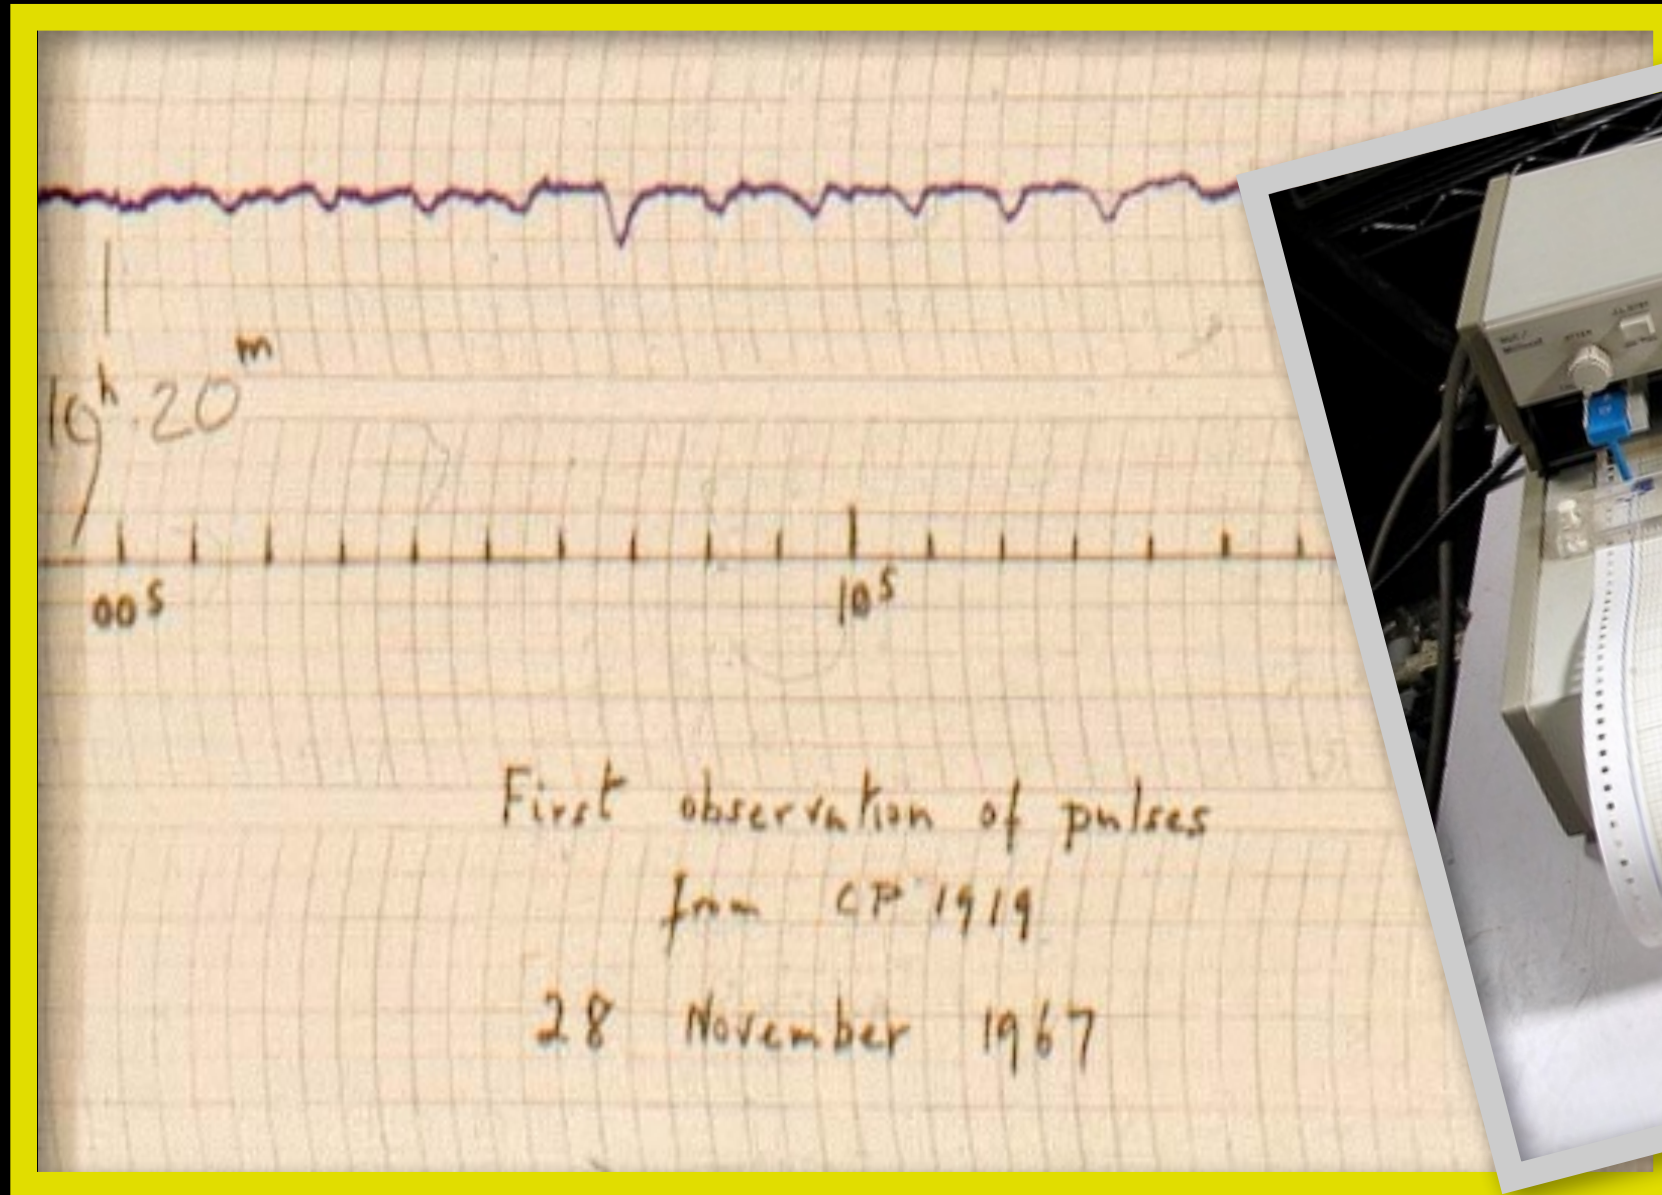 19h 20m
00s
10s
First observation of pulses
from CP 1919
28 November 1967